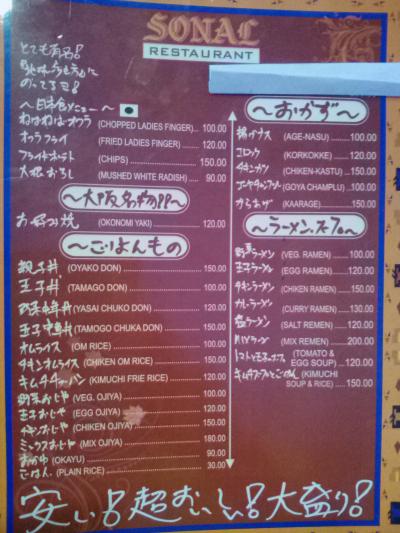 SONAL
RESTAURANT
とても有名!
のってる
〜日本食メニュー〜
ねばねばオクラ (CHOPPED LADIES FINGER)... 100.00
オクラフライ (FRIED LADIES FINGER)........ 120.00
フライドポテト (CHIPS) ........................ 150.00
大根おろし (MUSHED WHITE RADISH)..... 90.00
〜大阪名物!?〜
お好み焼 (OKONOMI YAKI) ........................... 120.00
〜ごはんもの
親子丼 (OYAKO DON) ................................ 150.00
玉子丼 (TAMAGO DON) .............................. 100.00
野菜中華丼 (YASAI CHUKO DON) ...................... 120.00
玉子中華丼 (TAMOGO CHUKA DON) ................. 150.00
オムライス (OM RICE) ................................. 100.00
チキンオムライス (CHIKEN OM RICE) ...................... 150.00
キムチチャーハン (KIMUCHI FRIE RICE) .................. 120.00
野菜おじや (VEG. OJIYA) .............................. 100.00
玉子おじや (EGG OJIYA) ............................... 120.00
チキンおじや (CHIKEN OJIYA) .......................... 150.00
ミックスおじや (MIX OJIYA) .............................. 180.00
おかゆ (OKAYU) ..................................... 90.00
ごはん (PLAIN RICE) ................................ 30.00
〜おかず〜
揚げナス (AGE-NASU) ............. 100.00
コロッケ (KORKOKKE) ............. 120.00
チキンカツ (CHIKEN-KASTU) ......... 150.00
ゴーヤチャンプルー (GOYA CHAMPLU) ..... 100.00
からあげ (KAARAGE) ................. 150.00
〜ラーメン、スープ〜
野菜ラーメン (VEG. RAMEN) ........... 100.00
玉子ラーメン (EGG RAMEN) ............ 120.00
チキンラーメン (CHIKEN RAMEN) ........ 150.00
カレーラーメン (CURRY RAMEN) ......... 130.00
塩ラーメン (SALT REMEN) ........... 120.00
MIXラーメン (MIX REMEN) ........... 200.00
トマトと玉子スープ (TOMATO & EGG SOUP) .... 120.00
キムチスープとごはん (KIMUCHI SOUP & RICE) ..... 150.00
安い! 超おいしい! 大盛り!